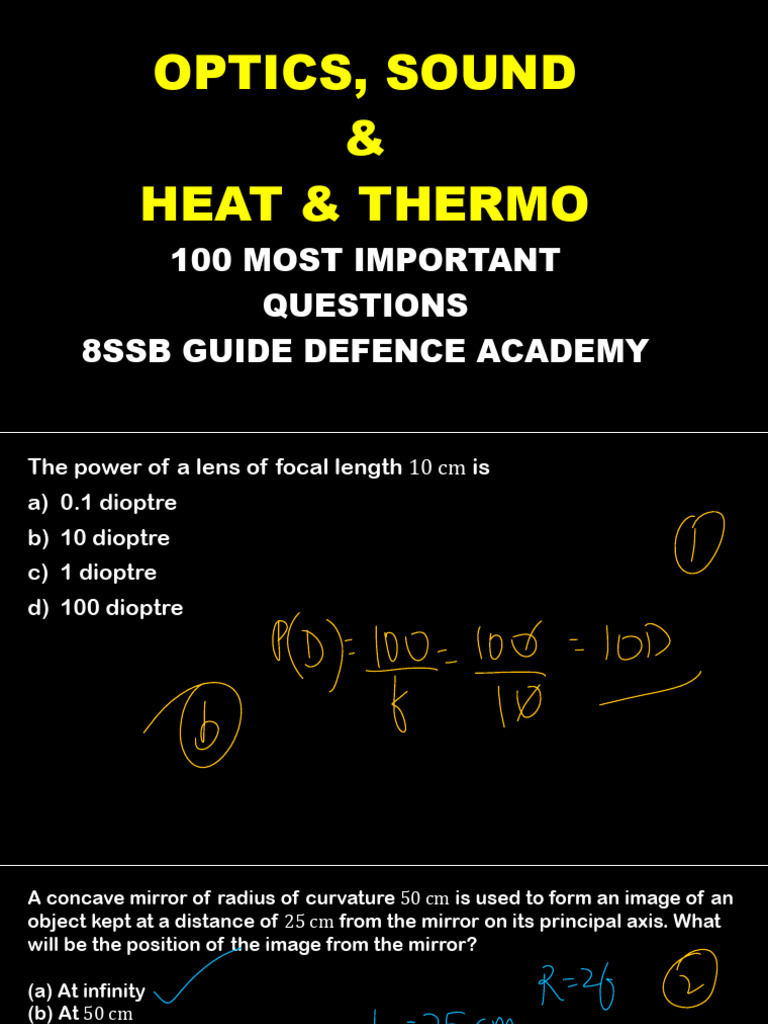 OPTICS, SOUND
&
HEAT & THERMO
100 MOST IMPORTANT
QUESTIONS
8SSB GUIDE DEFENCE ACADEMY
The power of a lens of focal length 10 cm is
a) 0.1 dioptre
b) 10 dioptre
c) 1 dioptre
d) 100 dioptre
1
P(D) = 100/f = 100/10 = 10D
b
A concave mirror of radius of curvature 50 cm is used to form an image of an
object kept at a distance of 25 cm from the mirror on its principal axis. What
will be the position of the image from the mirror?
R=2f
2
(a) At infinity
(b) At 50 cm
=25 cm